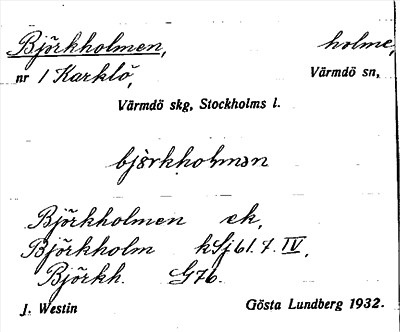 Björkholmen, holme,
nr 1 Karklö, Värmdö sn,
Värmdö skg, Stockholms l.
björkholmən
Björkholmen ek,
Björkholm kSj 61.7. IV,
Björkh. G76.
J. Westin Gösta Lundberg 1932.